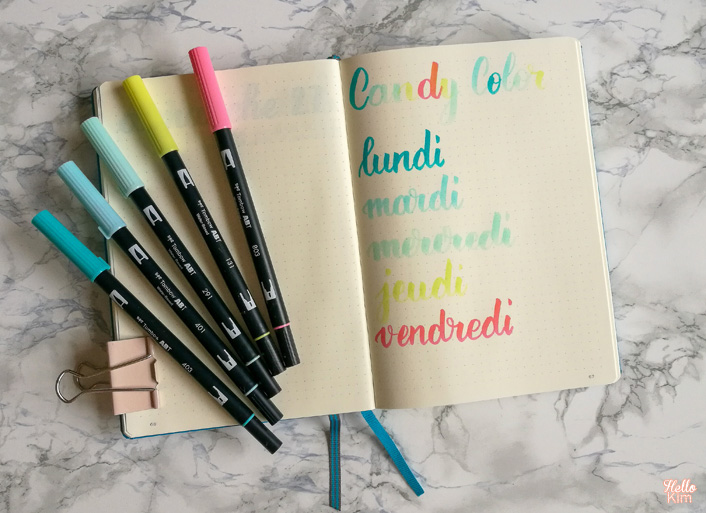 Candy Color
lundi
mardi
mercredi
jeudi
vendredi
Tombow ABT
803
Tombow ABT
131
Tombow ABT
291
Tombow ABT
401
Tombow ABT
403
Hello
Kim